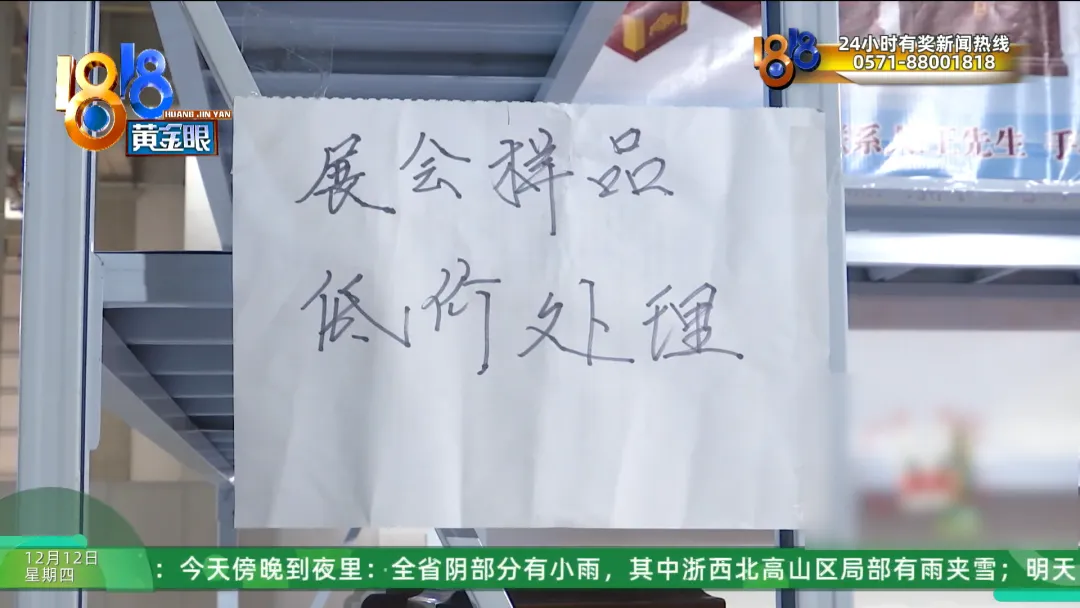 1818
HUANG JIN YAN
黄金眼
1818
24小时有奖新闻热线
0571-88001818
系人 王先生 手
展会样品
低价处理
12月12日
星期四
：今天傍晚到夜里：全省阴部分有小雨，其中浙西北高山区局部有雨夹雪；明天